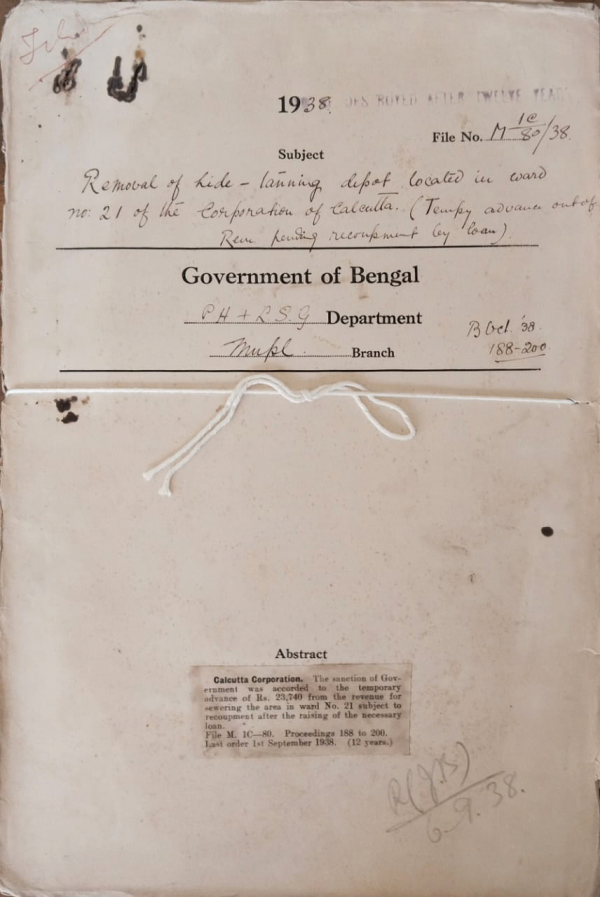 1938. DESTROYED AFTER TWELVE YEAR
File No. M 1C/80/38.
Subject
Removal of hide-tanning depot located in ward
no: 21 of the Corporation of Calcutta. (Tempy advance out of
Rem. pending recoupment by loan).
Government of Bengal
PH + L.S.G Department
Mupl. Branch
B Oct. '38.
188-200
Abstract
Calcutta Corporation. The sanction of Gov-
ernment was accorded to the temporary
advance of Rs. 23,740 from the revenue for
sewering the area in ward No. 21 subject to
recoupment after the raising of the necessary
loan.
File M. 1C—80. Proceedings 188 to 200.
Last order 1st September 1938. (12 years.)
6.9.38.